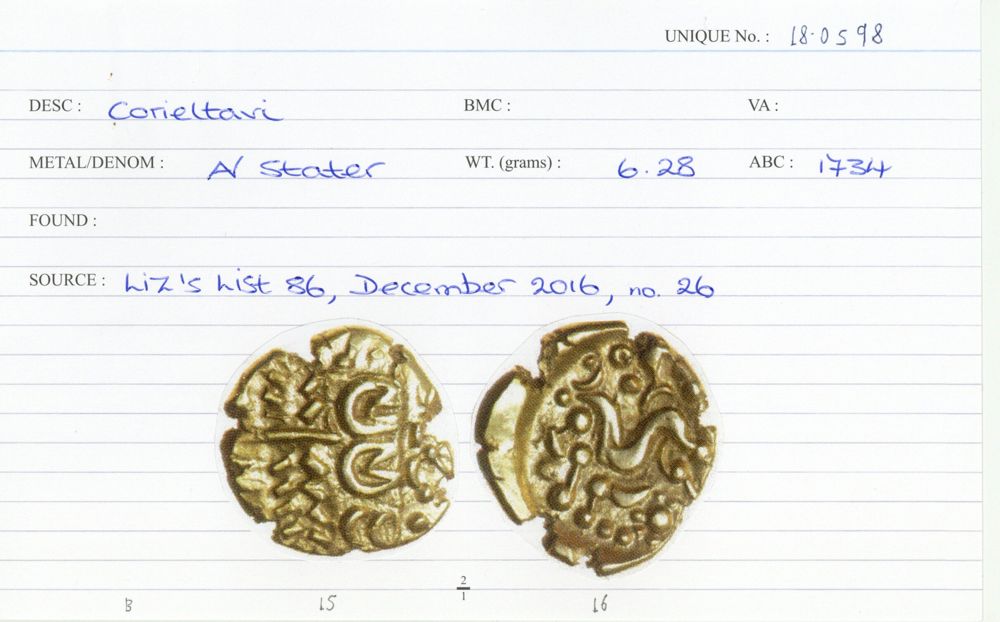 UNIQUE No. : 18.0598
DESC : Corieltavi BMC : VA :
METAL/DENOM : A/ Stater WT. (grams) : 6.28 ABC : 1734
FOUND :
SOURCE : Liz's List 86, December 2016, no. 26
2
1
B 15 16